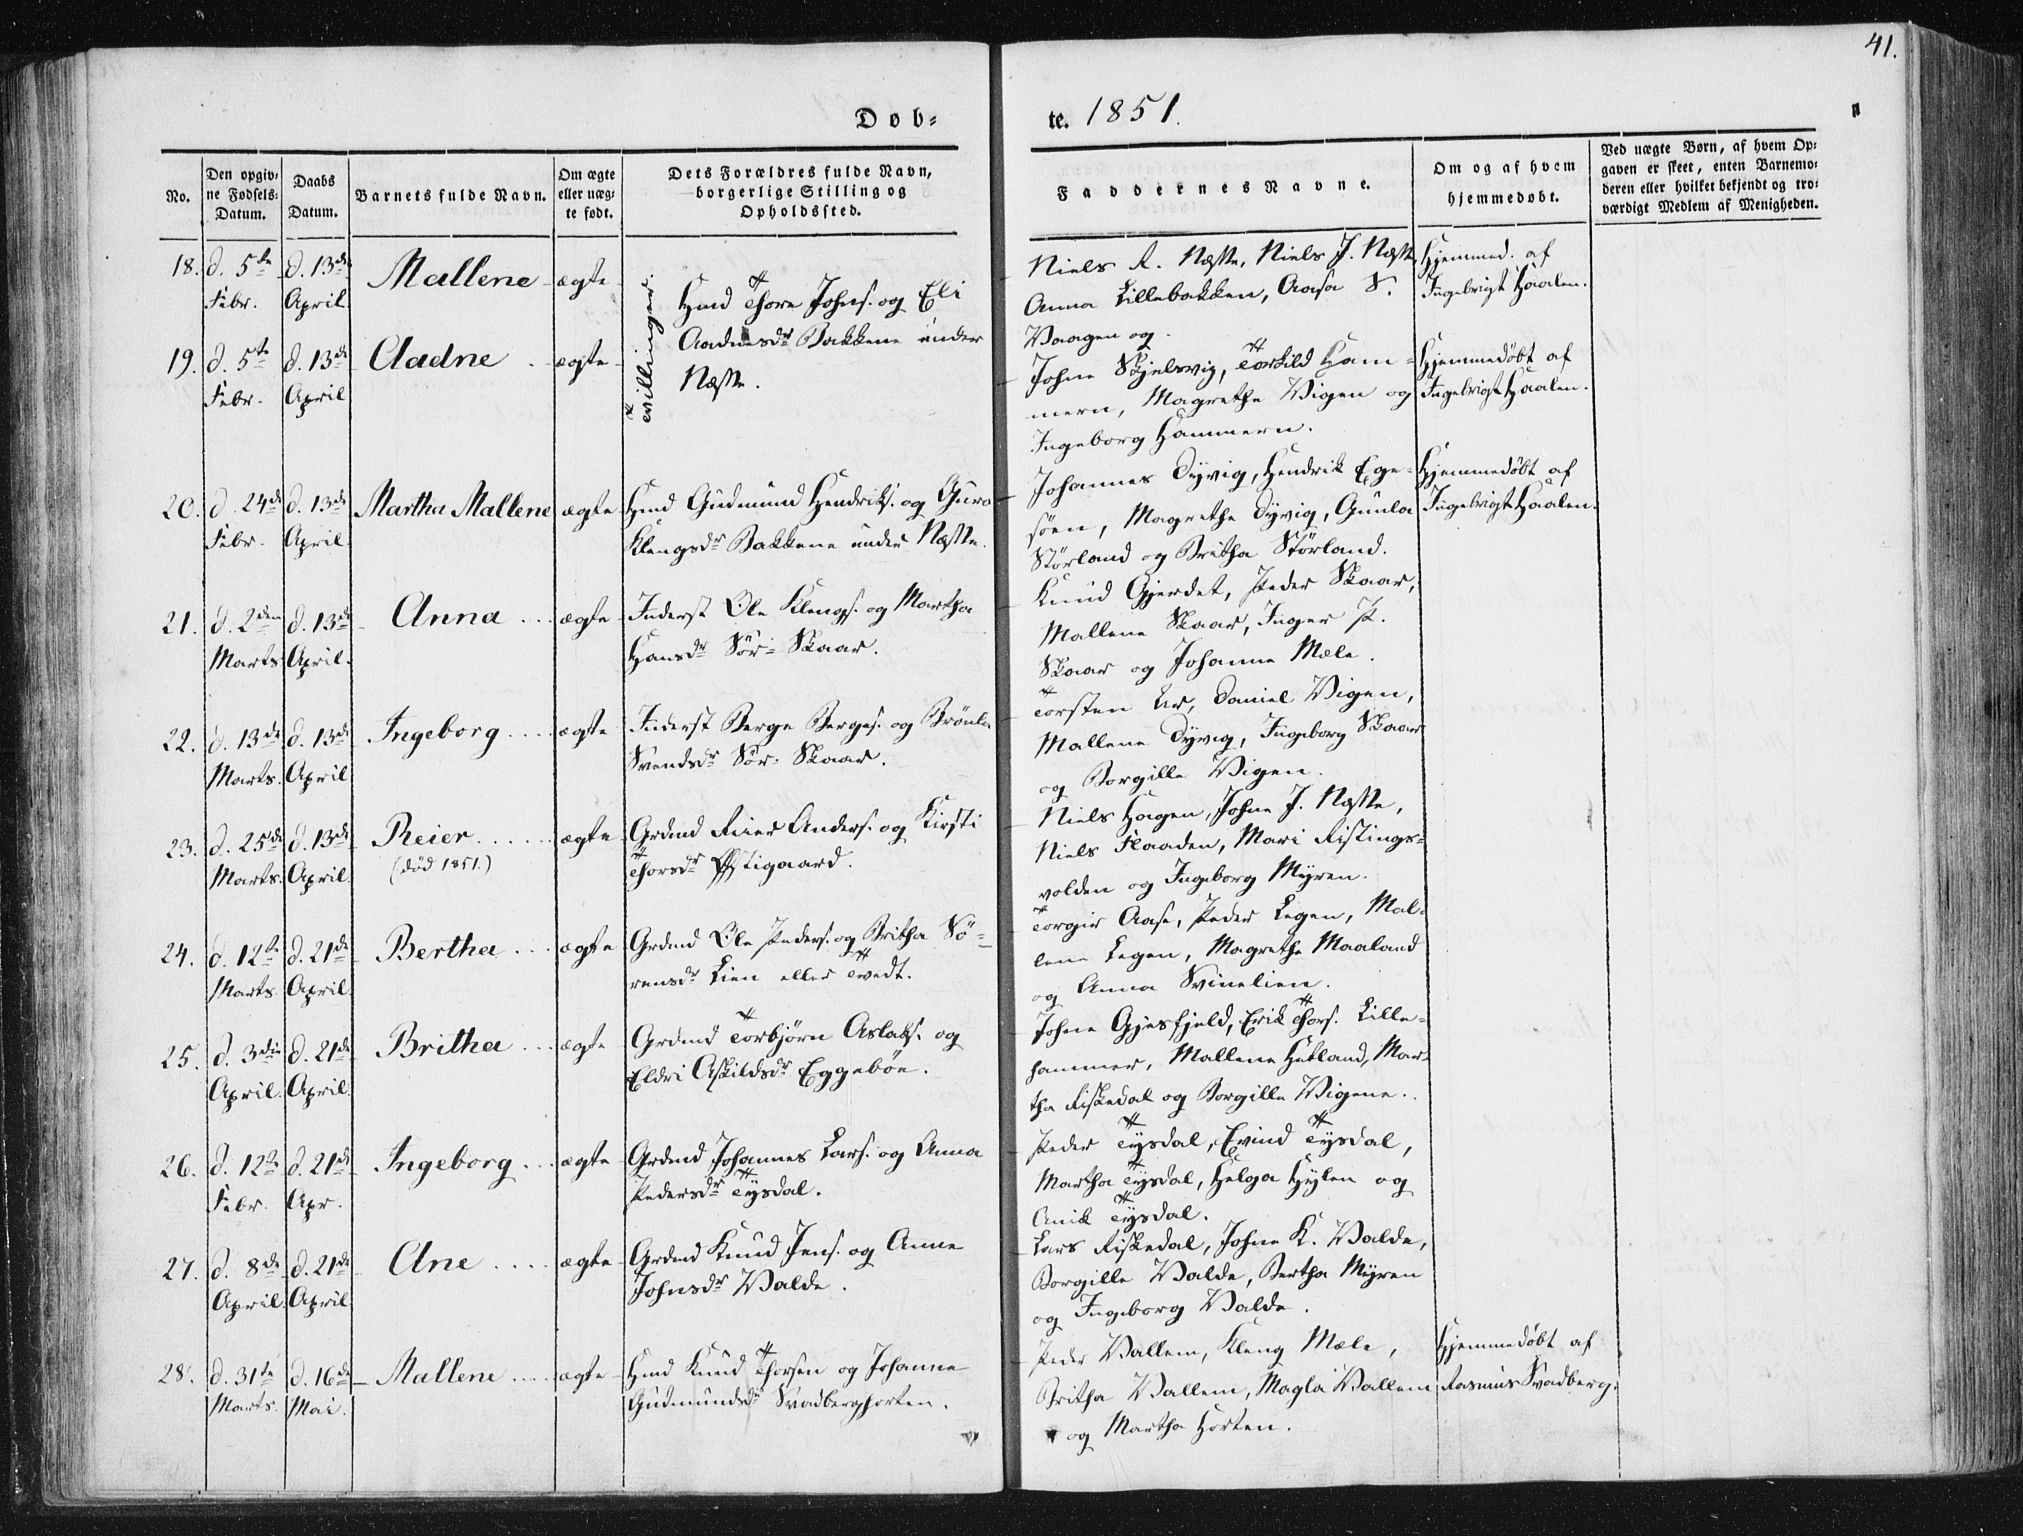 41.
Døb-
te. 1851.
No.
Den opgiv-
ne Fødsels-
Datum.
Daabs
Datum.
Barnets fulde Navn.
Om ægte
eller uæg-
te født.
Dets Forældres fulde Navn,
borgerlige Stilling og
Opholdssted.
Faddernes Navne.
Om og af hvem
hjemmedøbt.
Ved uægte Børn, af hvem Op-
gaven er skeet, enten Barnemo-
deren eller hvilket bekjendt og tro-
værdigt Medlem af Menigheden.
18. d. 5te Febr.
d. 13de April
Mallene
ægte
Tvillinger.
Hmd Thore Johns. og Eli
Aadnesdr Bakkene under
Næsse.
Niels R. Næsse, Niels J. Næsse,
Anna Lillebakken, Aasa S.
Vaagen og
Hjemmed. af
Ingebrigt Haalen.
19. d. 5te Febr.
d. 13de April
Aadne
ægte
Johne Skjelsvig, Torkild Ham-
mern, Magrethe Vigen og
Ingeborg Hammern.
Hjemmedøbt af
Ingebrigt Haalen.
20. d. 24de Febr.
d. 13de April.
Martha Mallene
ægte
Hmd Gudmund Hendriks. og Guro
Klengsdr Bakkene under Næsse.
Johannes Dyvig, Hendrik Ege-
søen, Magrethe Dyvig, Gunla
Størland og Britha Størland.
Hjemmedøbt af
Ingebrigt Haalen.
21. d. 2den Marts
d. 13de April.
Anna
ægte
Inderst Ole Klengs. og Martha
Hansdr Sør-Skaar.
Knud Gjerdet, Peder Skaar,
Mallene Skaar, Inger P.
Skaar og Johanne Mæle.
22. d. 13de Marts.
d. 13de April
Ingeborg
ægte
Inderst Berge Berges. og Brønla
Svendsdr Sør-Skaar.
Torsten Ur, Daniel Vigen,
Mallene Dyvig, Ingeborg Skaar
og Borgille Vigen.
23. d. 25de Marts.
d. 13de April.
Reier
(død 1851.)
ægte
Grdmd Reier Anders. og Kirsti
Thorsdr Østigaard.
Niels Hagen, Johne J. Næsse,
Niels Flaaden, Mari Ristings-
volden og Ingeborg Myren.
24. d. 12te Marts.
d. 21de April.
Bertha
ægte
Grdmd Ole Peders. og Britha Sø-
rensdr Lien eller Tvedt.
Torgir Aase, Peder Legen, Mal-
lene Legen, Magrethe Maaland
og Anna Svinelien.
25. d. 3die April.
d. 21de April.
Britha
ægte
Grdmd Torbjørn Aslaks. og
Eldri Askildsdr Eggebøe.
Johne Gjesfjeld, Erik Thors. Lille-
hammer, Mallene Hetland, Mar-
tha Riskedal og Borgille Vigene.
26. d. 12te Febr.
d. 21de Apr.
Ingeborg
ægte
Grdmd Johannes Lars. og Anna
Pedersdr Tysdal.
Peder Tysdal, Evind Tysdal,
Martha Tysdal, Helga Hylen og
Anik Tysdal.
27. d. 8de April.
d. 21de April.
Ane
ægte
Grdmd Knud Jens. og Anne
Johnsdr Valde.
Lars Riskedal, Johne K. Valde,
Borgille Valde, Bertha Myren
og Ingeborg Valde.
28. d. 31te Marts.
d. 16de Mai.
Mallene
ægte
Hmd Knud Thorsen og Johanne
Gudmundsdr Svadberghorten.
Peder Vallem, Kleng Mæle,
Britha Vallem, Magla Vallem
og Martha Horten.
Hjemmedøbt af
Rasmus Svadberg.